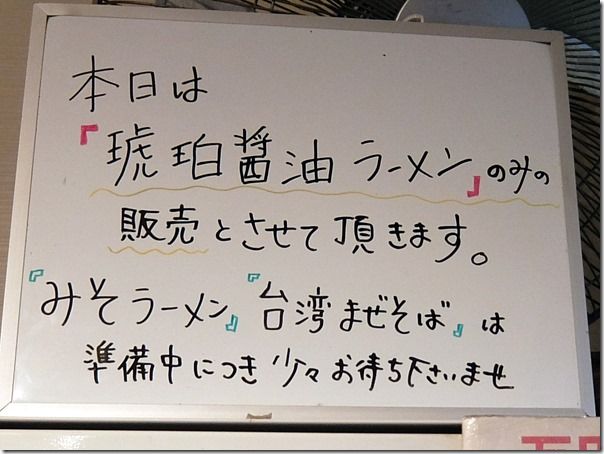 本日は
『琥珀醤油ラーメン』のみの
販売とさせて頂きます。
『みそラーメン』『台湾まぜそば』は
準備中につき少々お待ち下さいませ